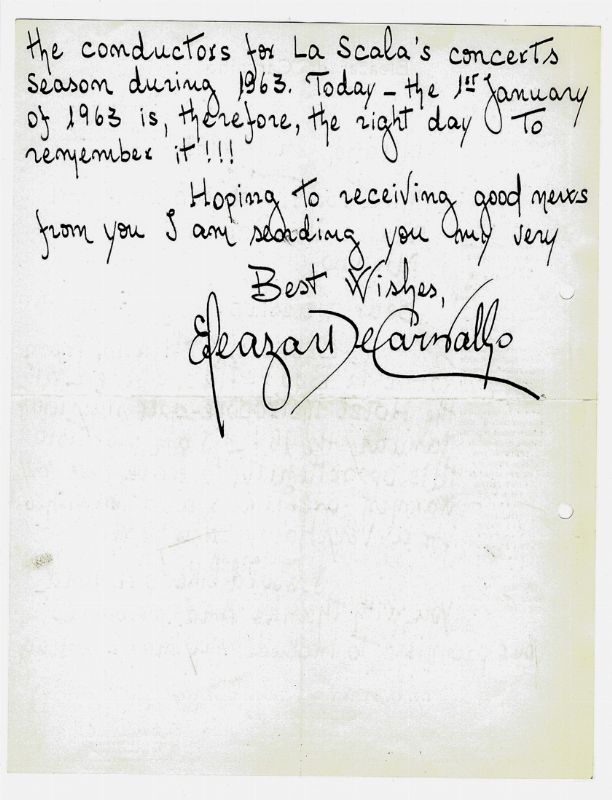 the conductors for La Scala's concerts
Season during 1963. Today – the 1st January
of 1963 is, therefore, the right day to
remember it!!!
Hoping to receiving good news
from you I am sending you my very
Best Wishes,
Eleazar De Carvalho